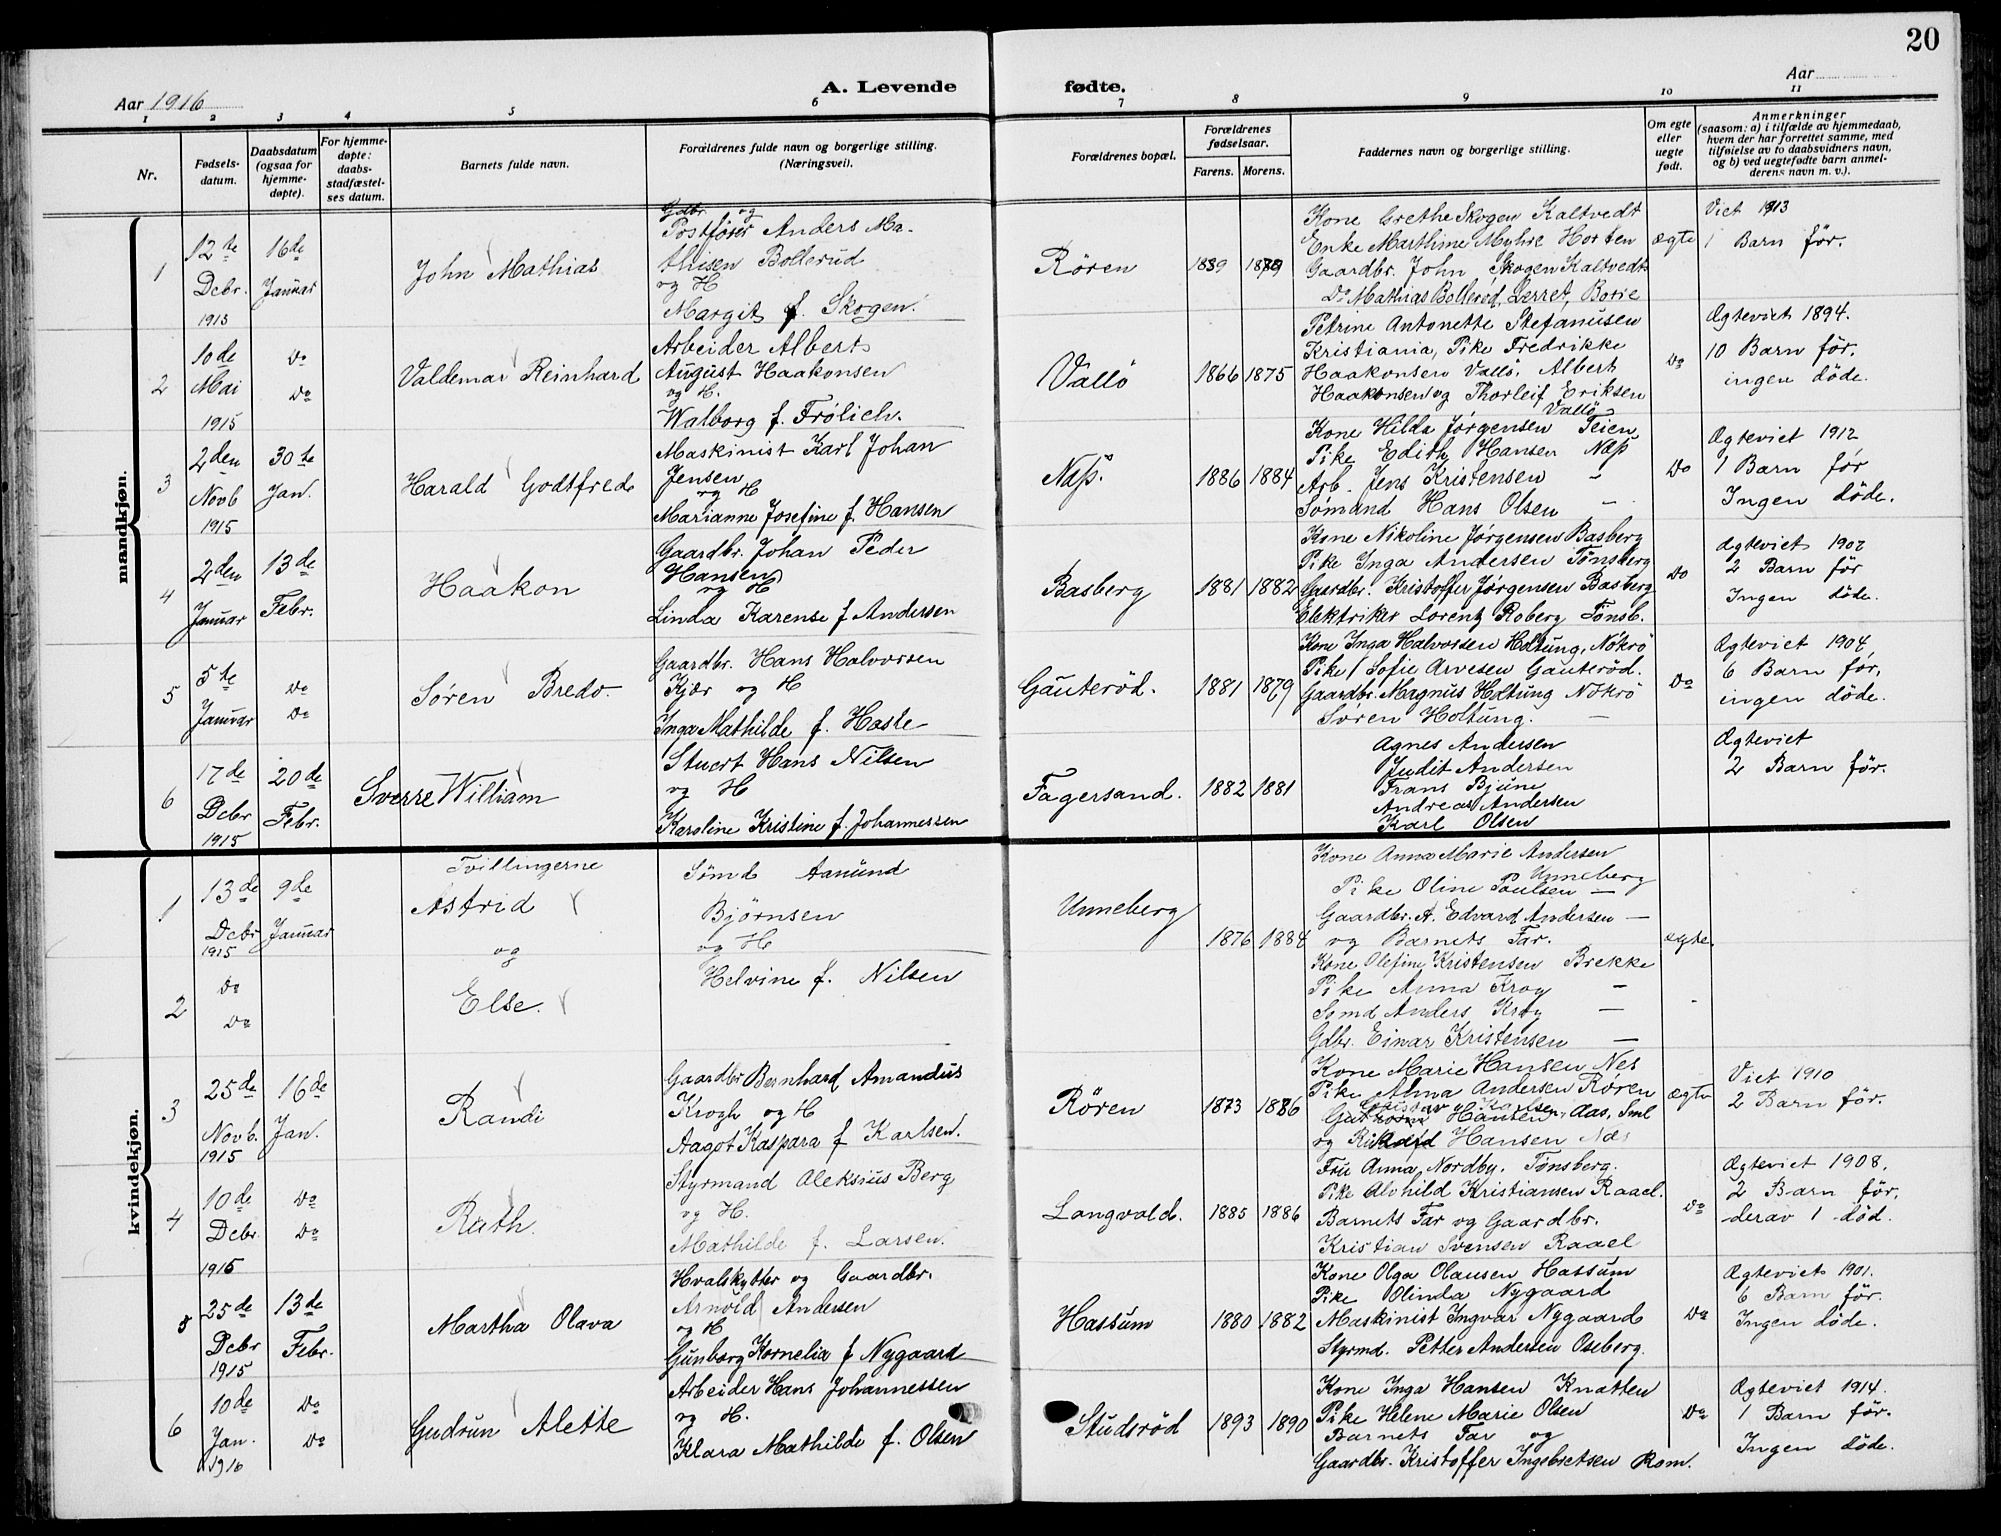 20
Aar 1916
A. Levende
fødte.
Aar
1 2 3 4 5 6 7 8 9 10 11
Nr.
Fødsels-
datum.
Daabsdatum
(ogsaa for
hjemme-
døpte).
For hjemme-
døpte:
daabs-
stadfæstel-
ses datum.
Barnets fulde navn.
Forældrenes fulde navn og borgerlige stilling.
(Næringsvei).
Forældrenes bopæl.
Forældrenes
fødselsaar.
Farens. Morens.
Faddernes navn og borgerlige stilling.
Om egte
eller
uegte
født.
Anmerkninger
(saasom: a) i tilfælde av hjemmedaab,
hvem der har forrettet samme, med
tilføielse av to daabsvidners navn,
og b) ved uegtefødte barn anmel-
derens navn m. v.).
mandkjøn.
1
12te
Dcbr.
1915
16de
Januar
John Mathias
Gdbr. og
Postfører Anders Ma-
thisen Bollerud
og H
Margit f. Skogen.
Røren
1889 1889
Kone Grethe Skogen Kaltvedt
Enke Marthine Myhre Horten
Gaardbr. John Skogen Kaltvedt
Do Mathias Bollerød, Lerret, Borre
ægte
Viet 1913
1 Barn før.
2
10de
Mai
1915
Do
Do
Valdemar Reinhard
Arbeider Albert
August Haakonsen
og H.
Walborg f. Frölich.
Vallö
1866 1875
Petrine Antonette Stefanusen
Kristiania, Pike Fredrikke
Haakonsen Vallö, Albert
Haakonsen og Thorleif Eriksen
Vallö
Do
Ægteviet 1894.
10 Barn før.
ingen døde.
3
2den
Novb
1915
30te
Jan.
Harald Godtfred
Maskinist Karl Johan
Jensen
og H
Marianne Josefine f Hansen
Næss
1886 1884
Kone Hilda Jørgensen Teien
Pike Edith Hansen Næss
Arb. Jens Kristensen -
Sömand Hans Olsen -
Do
Ægteviet 1912
1 Barn før
Ingen døde.
4
2den
Januar
13de
Febr.
Haakon
Gaardbr. Johan Peder
Hansen
og H
Linda Karense f Andersen
Basberg
1881 1882
Kone Nikoline Jørgensen Basberg
Pike Inga Andersen Tønsberg
Gaardbr. Kristoffer Jørgensen Basberg
Elektriker Lorentz Roberg Tønsb.
Do
Ægteviet 1907
2 Barn før
Ingen døde.
5
5te
Januar
Do
Do
Søren Bredo.
Gaardbr. Hans Halvorsen
Kjær og H
Inga Mathilde f. Haske
Gauterød.
1881 1879
Kone Inga Halvorsen Holtung, Nøkrö
Pike Sofie Arvesen Gauterød.
Gaardbr. Magnus Holtung Nøkrö
Søren Holtung. -
Do
Ægteviet 1904
6 Barn før,
ingen døde.
6
17de
Dcbr
1915
20de
Febr.
Sverre William
Stuert Hans Nilsen
og H
Karoline Kristine f. Johannessen
Fagersand.
1882 1881
Agnes Andersen
Judit Andersen
Frans Bjune
Andreas Andersen
Karl Olsen
Ægteviet
2 Barn før.
kvindekjøn.
1
13de
Dcbr
1915
9de
Januar
Tvillingerne
Astrid
og
Sømd Aamund
Bjørnsen
og H
Helvine f. Nilsen
Unneberg
1876 1884
Kone Anna Marie Andersen
Unneberg
Pike Oline Paulsen -
Gaardbr. A. Edvard Andersen -
og Barnets Far.
ægte.
2
Do
Do
Else.
Kone Olefine Kristensen Brekke
Pike Anna Krog -
Sømd Anders Krog -
Gdbr. Einar Kristensen -
3
25de
Novb.
1915
16de
Jan.
Randi
Gaardbr Bernhard Amandus
Krogh og H
Aagot Kaspara f Karlsen.
Røren
1873 1886
Kone Marie Hansen Nes
Pike Alma Andersen Røren
Guthorm Hansen, Aas, Sml
og Rikard Hansen Næs
ægte
Viet 1910
2 Barn før.
4
10de
Dcbr.
1915
Do
Do
Ruth.
Styrmand Aleksius Berg
og H.
Mathilde f. Larsen.
Langvald.
1885 1886
Fru Anna Nordby. Tønsberg.
Pike Alvhild Kristiansen Raael.
Barnets Far og Gaardbr.
Kristian Svensen Raael
Do
Ægteviet 1908.
2 Barn før,
derav 1 død.
5
25de
Dcbr
1915
13de
Febr.
Martha Olava
Hvalskytter og Gaardbr.
Arnold Andersen
og H
Gunborg Kornelia f Nygaard
Hassum
1880 1882
Kone Olga Olausen Hassum
Pike Olinda Nygaard
Maskinist Ingvar Nygaard
Styrmd. Petter Andersen Oseberg.
Do
Ægteviet 1901.
6 Barn før.
Ingen døde.
6
10de
Jan.
1916
Do
Do
Gudrun Alette
Arbeider Hans Johannessen
og H.
Klara Mathilde f. Olsen
Studsrød
1893 1890
Kone Inga Hansen Knatten
Pike Helene Marie Olsen
Barnets Far og
Gaardbr. Kristoffer Ingebretsen Rom.
Do
Ægteviet 1914.
1 Barn før.
Ingen døde.